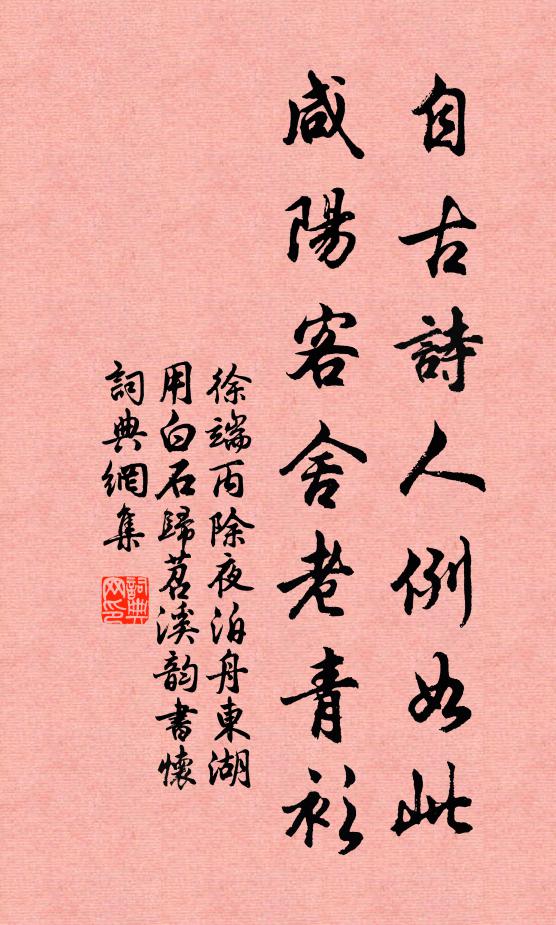 自古詩人例如此
咸陽客舍老青衫
徐端丙除夜泊舟東湖
用白石歸苕溪韵書懷
詞典網集
詞典网印